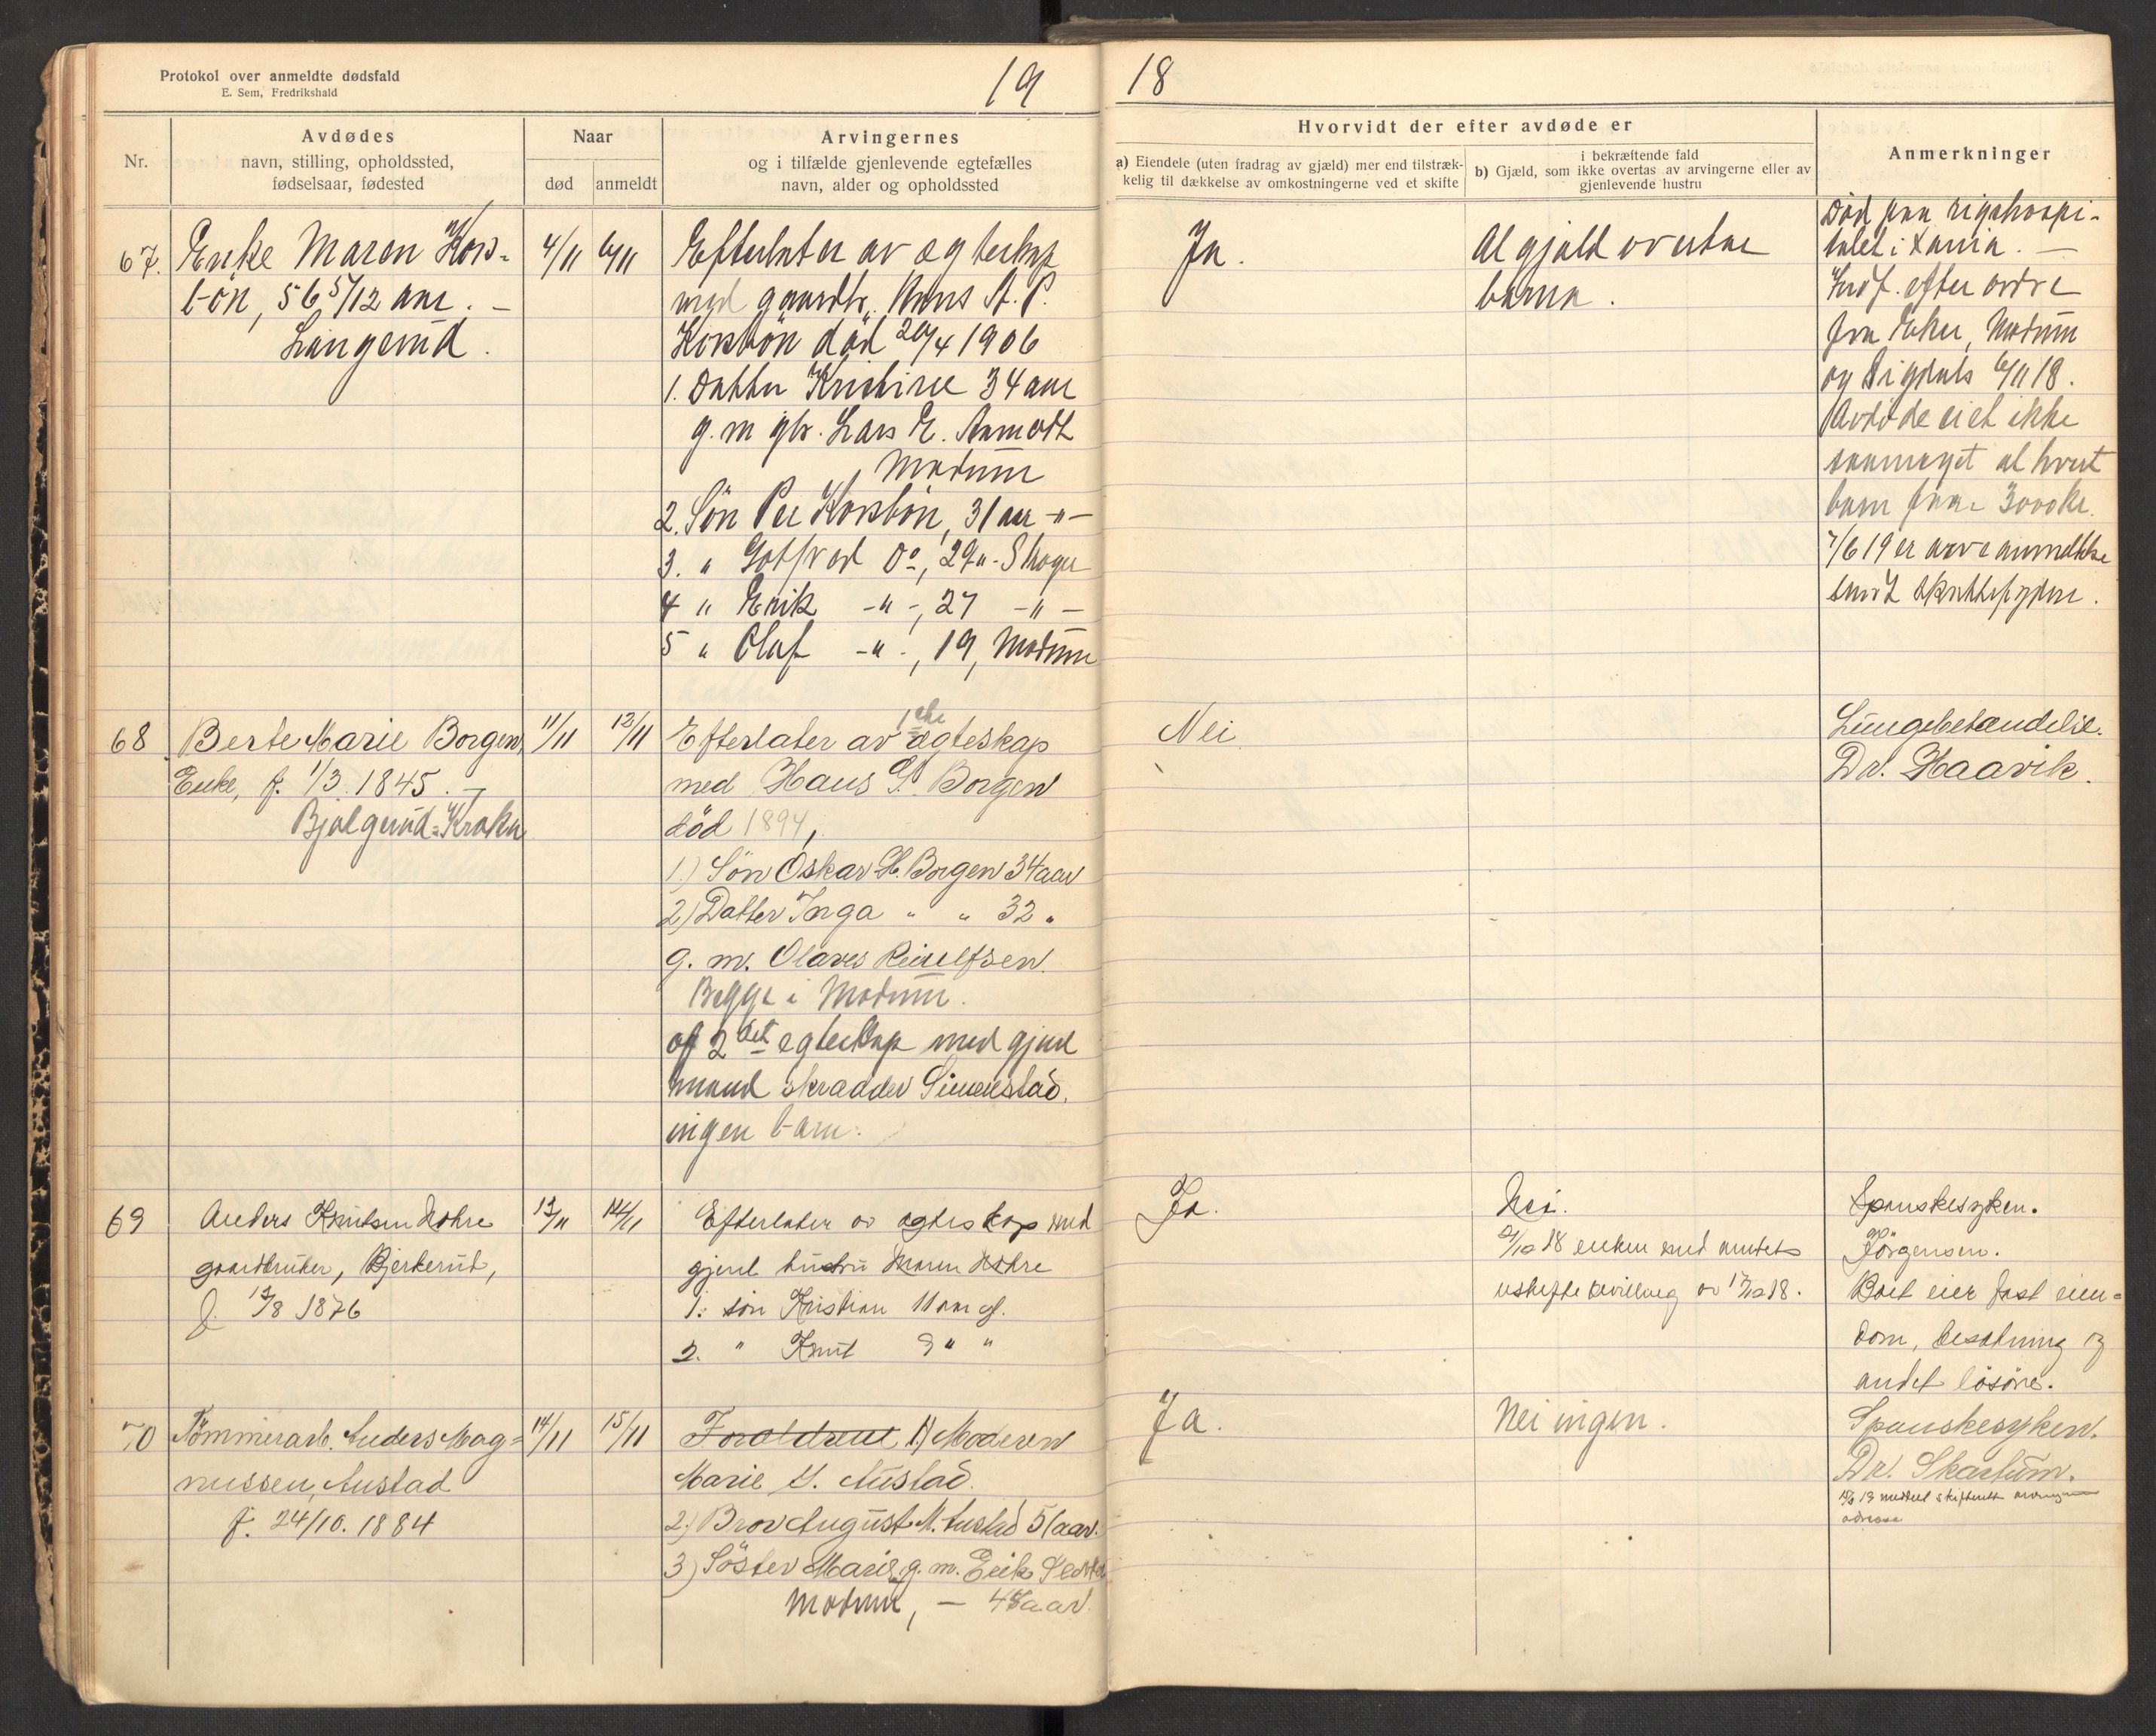 Protokol over anmeldte dødsfald
E. Sem, Fredrikshald
19
18
Nr.
Avdødes
navn, stilling, opholdssted,
fødselsaar, fødested
Naar
død
anmeldt
Arvingernes
og i tilfælde gjenlevende egtefælles
navn, alder og opholdssted
Hvorvidt der efter avdøde er
a) Eiendele (uten fradrag av gjæld) mer end tilstræk-
kelig til dækkelse av omkostningerne ved et skifte
i bekræftende fald
b) Gjæld, som ikke overtas av arvingerne eller av
gjenlevende hustru
Anmerkninger
67. Enke Maren Kors-
bön, 56 5/12 aar. –
Langerud.
4/11 6/11
Efterlater av egteskap
med gaardbr. Hans A. P.
Korsbön död 20/4 1906
1. Datter Kristine 34 aar
g. m gbr. Lars E.
Modum
2. Sön Per Korsbön, 31 aar -"-
3. " Gotfred Do, 29 " - Skoger
4 " Erik -"-, 27 -"-
5 " Olaf -"-, 19, Modum
Ja.
Al gjæld overtar
barna.
Död paa rigshospi-
talet i Xania. –
Indf. efter ordre
fra Eker, Modum
og Sigdals 6/11 18.
Avdöde eiet ikke
saameget at hvert
barn faar 3000 kr.
7/6 19 er arveanmeldelse
sendt skattefogden.
68 Berte Marie Borgen,
Enke, f. 1/3 1845. –
Bjølgerud-Kroken
11/11 12/11
Efterlater av 1ste ægteskap
med Hans P. Borgen
död 1894,
1) Sön Oskar H. Borgen 34 aar
2) Datter Inga " " 32 "
g. m. Olaves Reiulfsen.
Begge i Modum.
af 2det egteskap med gjenl
mand skrædder Simenstad.
ingen barn.
Nei
Lungebetændelse.
Dr. Haavik.
69 Anders Knutsen Hohre
gaardbruker, Bjerkerud,
f. 12/8 1876
13/11 14/11
Efterlater av egteskap med
gjenl hustru Maren Hohre
1. sön Kristian 11 aar gl.
2. " Knut 9 " "
Ja.
Nei.
enken med amtets
uskiftebevilling av 17/12 18.
Spanskesyken.
Jörgensen.
Boet eier fast eien-
dom, besætning og
andet lösöre.
70 Tömmerarb. Anders Mag-
nussen, Austad
f. 24/10. 1884
14/11 15/11
Forældrene 1) Moderen
Marie S. Austad.
2) Bror August M. Austad 51 aar.
3) Söster Marie g. m. Erik
Modum, –
Ja.
Nei ingen.
Spanskesyken.
Dr. Skartum.
adresse